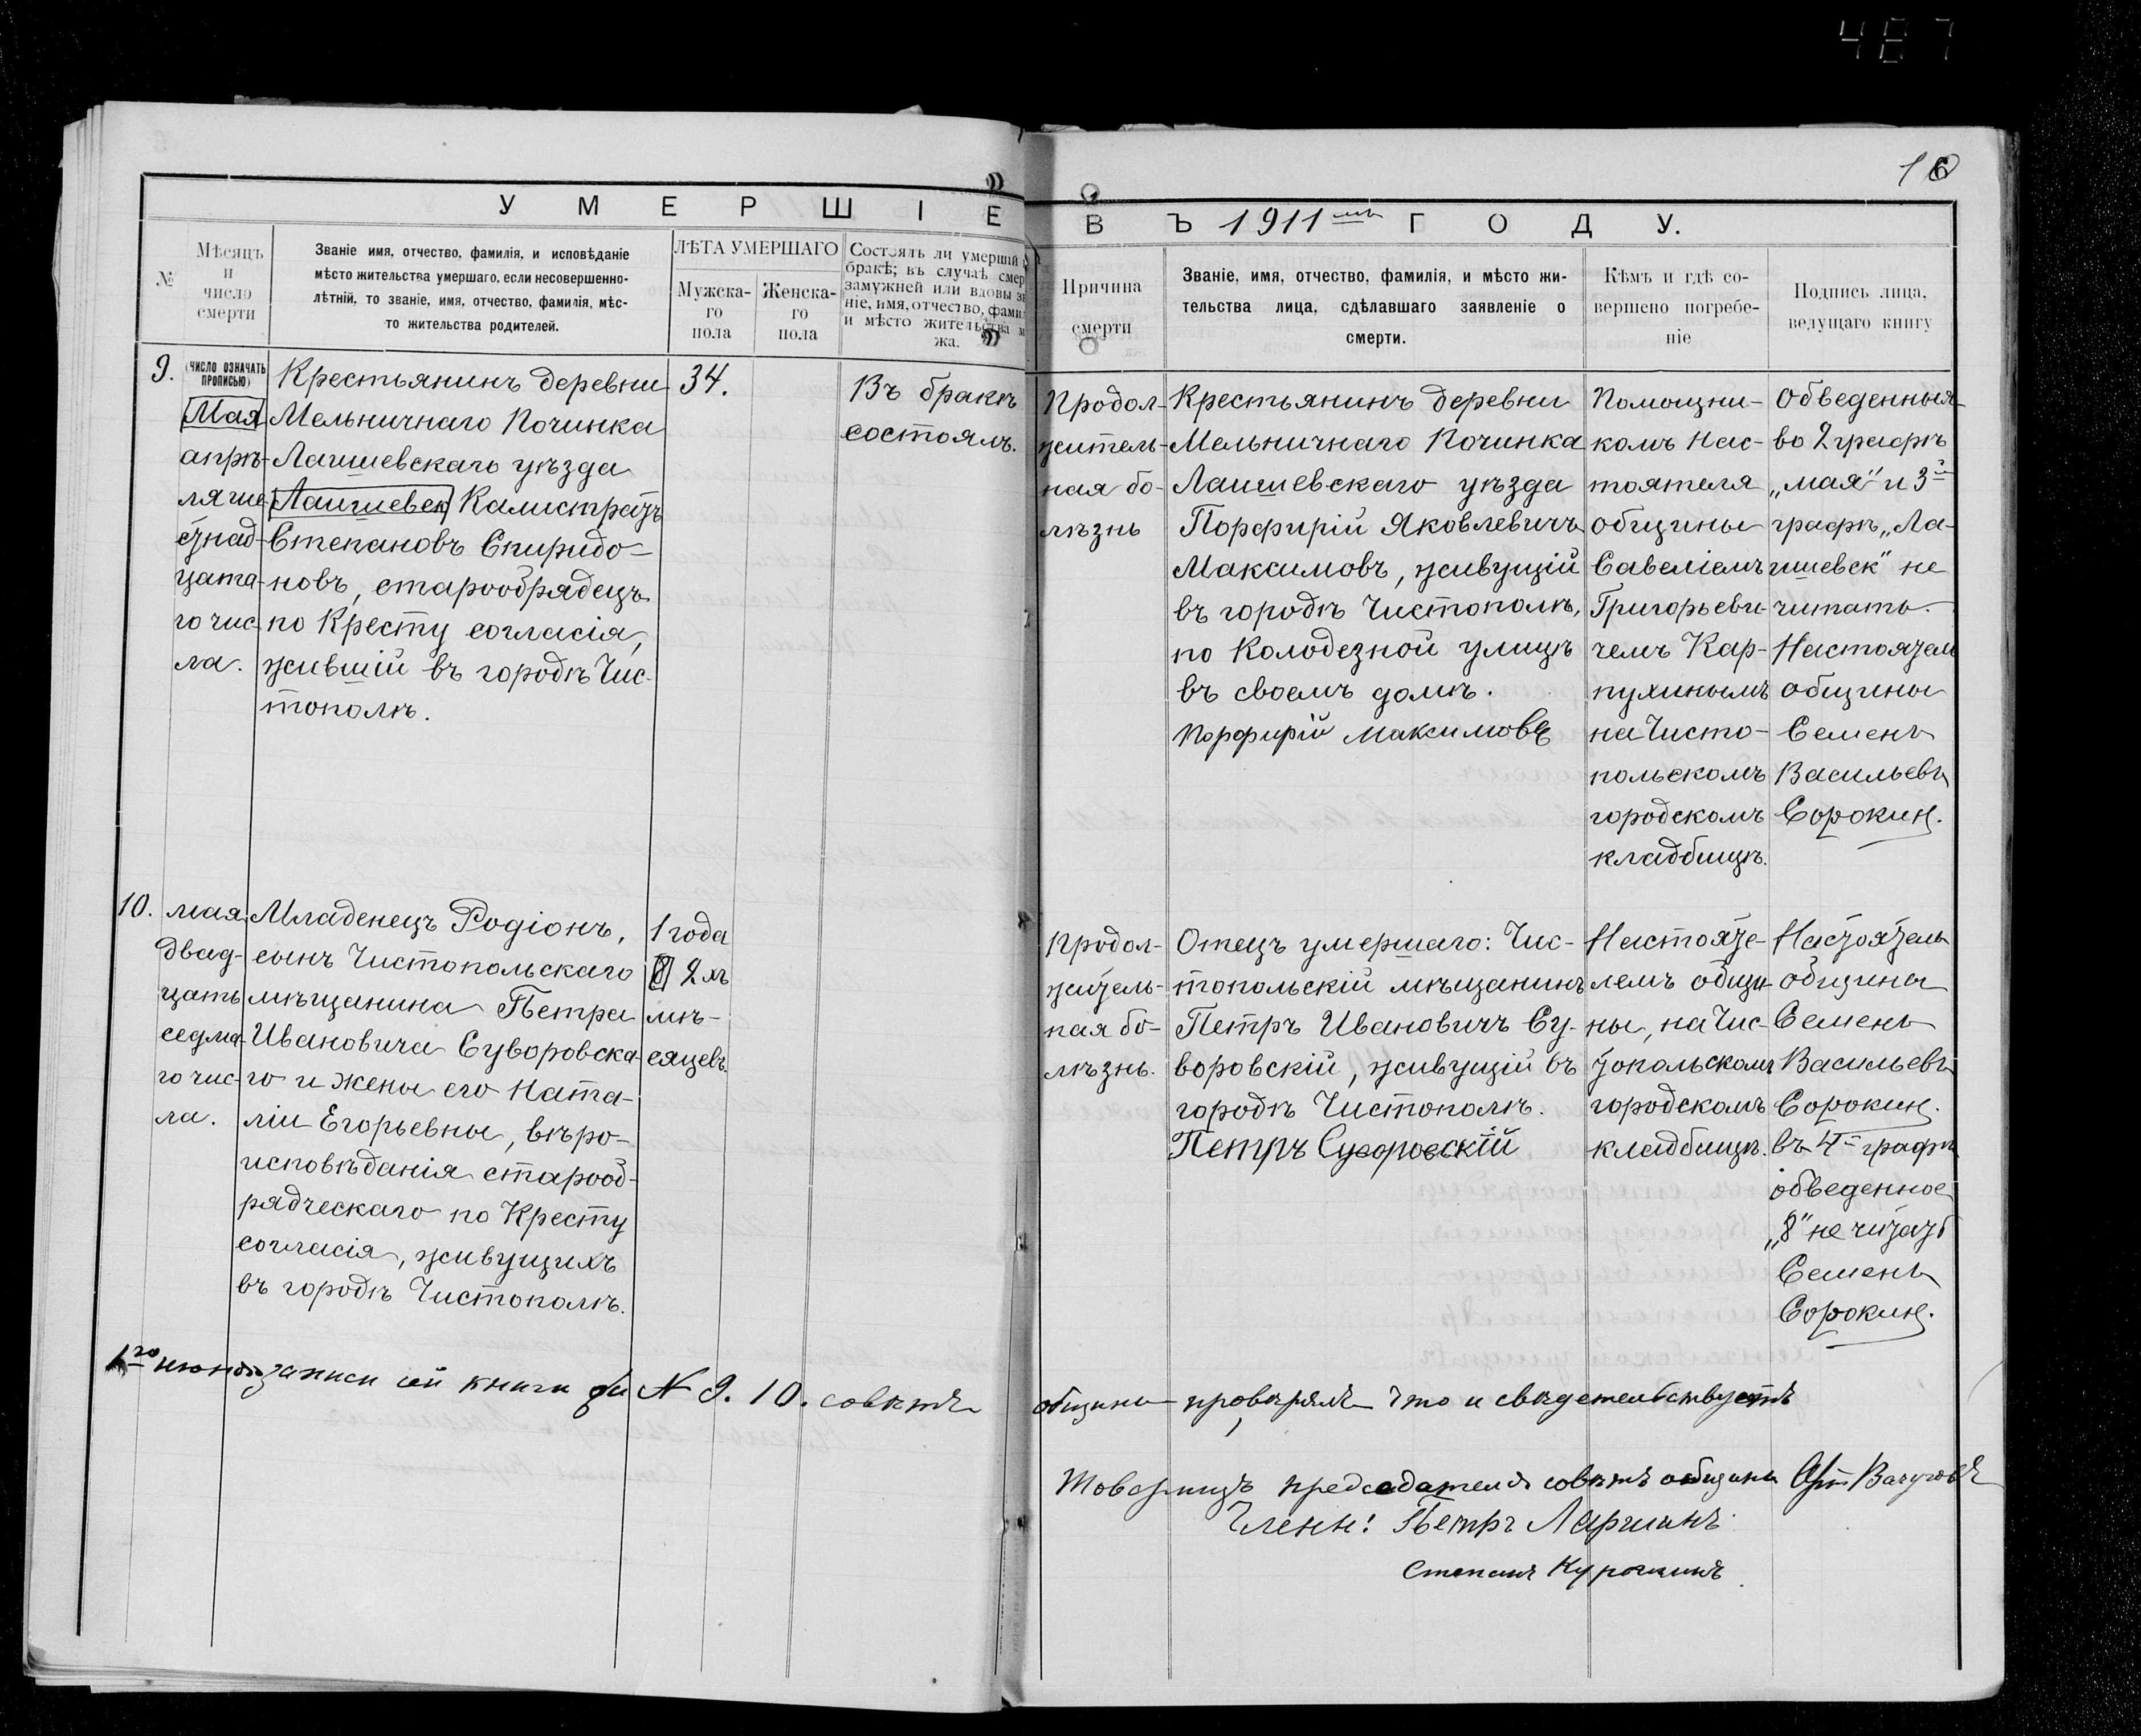 487
16
УМЕРШІЕ
ВЪ 1911мъ ГОДУ.
№
Мѣсяцъ
и
число
смерти
Званіе имя, отчество, фамилія, и исповѣданіе
мѣсто жительства умершаго, если несовершенно-
лѣтній, то званіе, имя, отчество, фамилія, мѣс-
то жительства родителей.
ЛѢТА УМЕРШАГО
Мужска-
го
пола
Женска-
го
пола
Состоялъ ли умершій
бракѣ; въ случаѣ смер
замужней или вдовы
ніе, имя, отчество, фами
и мѣсто жительства м
жа.
Причина
смерти
Званіе, имя, отчество, фамилія, и мѣсто жи-
тельства лица, сдѣлавшаго заявленіе о
смерти.
Кѣмъ и гдѣ со-
вершено погребе-
ніе
Подпись лица,
ведущаго книгу
9.
(ЧИСЛО ОЗНАЧАТЬ
ПРОПИСЬЮ)
Мая
апрѣ-
ля ше-
стнад-
цата-
го чис-
ла.
Крестьянинъ деревни
Мельничнаго Починка
Лаишевскаго уѣзда
Лаишевск Калистратъ
Степановъ Спиридо-
новъ, старообрядецъ
по Кресту согласія,
жившій въ городѣ Чис-
тополѣ.
34.
Въ бракѣ
состоялъ.
Продол-
житель-
ная бо-
лѣзнь
Крестьянинъ деревни
Мельничнаго Починка
Лаишевскаго уѣзда
Порфирій Яковлевичъ
Максимовъ, живущій
въ городѣ Чистополѣ,
по Колодезной улицѣ
въ своемъ домѣ.
Порфирій Максимовъ
Помощни-
комъ Нас-
тоятеля
общины
Савеліемъ
Григорьеви-
чемъ Кар-
пухинымъ
на Чисто-
польскомъ
городскомъ
кладбищѣ.
Обведенныя
во 2 графѣ
„мая" и 3й
графѣ „Ла-
ишевск" не
читать.
Настоятель
общины
Семенъ
Васильевъ
Сорокин.
10.
мая
двад-
цать
седма-
го чис-
ла.
Младенецъ Родіонъ,
сынъ Чистопольскаго
мѣщанина Петра
Ивановича Суворовска-
го и жены его Ната-
ліи Егорьевны, вѣро-
исповѣданія старооб-
рядческаго по Кресту
согласія, живущихъ
въ городѣ Чистополѣ.
1 года
8 2 хъ
мѣ-
сяцевъ.
Продол-
житель-
ная бо-
лѣзнь.
Отецъ умершаго: Чис-
топольскій мѣщанинъ
Петръ Ивановичъ Су-
воровскій, живущій въ
городѣ Чистополѣ.
Петръ Суворовскій
Настояте-
лемъ общи-
ны, на Чис-
топольскомъ
городскомъ
кладбищѣ.
Настоятель
общины
Семенъ
Васильевъ
Сорокин.
въ 4й графѣ
обведенное
„8" не читать
Семенъ
Сорокин.
1го июня записи сей книги за № 9. 10. совѣтъ
общины провѣрялъ что и свидетельствуетъ
Товарищъ председателя совѣтъ общины
Члены: Петръ Ларшинъ
Степанъ Курочкинъ